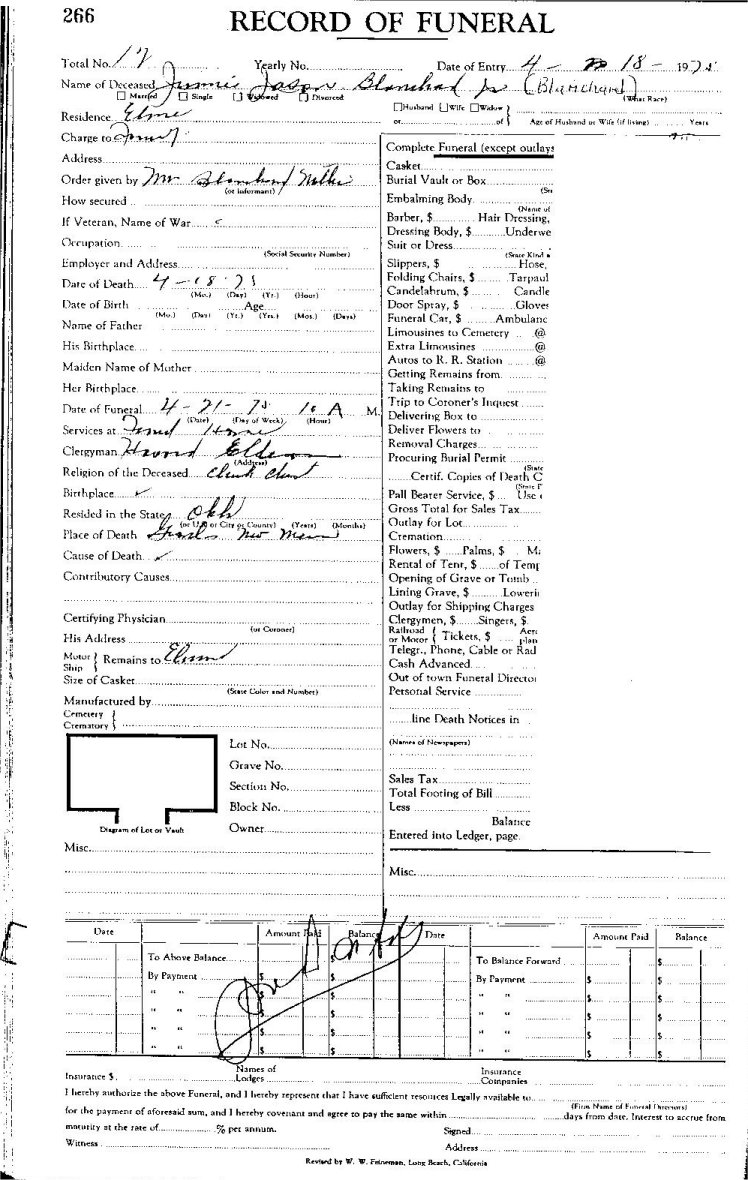 266
RECORD OF FUNERAL
Total No. 12 Yearly No. Date of Entry 4 - 18 - 1975
Name of Deceased Jimmie Jason Blanchard Jr (Blanchard)
☐ Married ☐ Single ☐ Widowed ☐ Divorced (What Race)
☐ Husband ☐ Wife ☐ Widow }
or of } Age of Husband or Wife (if living) Years
Residence Elmer
Charge to
Address
Order given by Mr Blanchard
(or informant)
How secured
If Veteran, Name of War
Occupation
(Social Security Number)
Employer and Address
Date of Death 4 - 18 - 75
(Mo.) (Day) (Yr.) (Hour)
Date of Birth Age
(Mo.) (Day) (Yr.) (Yrs.) (Mos.) (Days)
Name of Father
His Birthplace
Maiden Name of Mother
Her Birthplace
Date of Funeral 4 - 21 - 75 10 A M.
(Date) (Day of Week) (Hour)
Services at Home
Clergyman
(Address)
Religion of the Deceased Church Christ
Birthplace
Resided in the State Okla
(or U.S. or City or County) (Years) (Months)
Place of Death New Mexico
Cause of Death
Contributory Causes
Certifying Physician
(or Coroner)
His Address
Motor }
Ship } Remains to Elmer
Size of Casket
(State Color and Number)
Manufactured by
Cemetery }
Crematory }
Lot No.
Grave No.
Section No.
Block No.
Owner
Diagram of Lot or Vault
Misc.
Complete Funeral (except outlays
Casket
Burial Vault or Box
Embalming Body
(Name of
Barber, $ Hair Dressing,
Dressing Body, $ Underwe
Suit or Dress
(State Kind a
Slippers, $ Hose,
Folding Chairs, $ Tarpaul
Candelabrum, $ Candle
Door Spray, $ Gloves
Funeral Car, $ Ambulanc
Limousines to Cemetery @
Extra Limousines @
Autos to R. R. Station @
Getting Remains from
Taking Remains to
Trip to Coroner's Inquest
Delivering Box to
Deliver Flowers to
Removal Charges
Procuring Burial Permit
(State
Certif. Copies of Death C
(State P
Pall Bearer Service, $ Use
Gross Total for Sales Tax
Outlay for Lot
Cremation
Flowers, $ Palms, $
Rental of Tent, $ of Temp
Opening of Grave or Tomb
Lining Grave, $ Lowerin
Outlay for Shipping Charges
Clergymen, $ Singers, $
Railroad }
or Motor } Tickets, $ Aero
plan
Telegr., Phone, Cable or Rad
Cash Advanced
Out of town Funeral Director
Personal Service
line Death Notices in
(Names of Newspapers)
Sales Tax
Total Footing of Bill
Less
Balance
Entered into Ledger, page
Misc.
Date Amount Paid Balance Date Amount Paid Balance
To Above Balance $ To Balance Forward $
By Payment $ $ By Payment $ $
" " $ $ " " $ $
" " $ $ " " $ $
" " $ $ " " $ $
" " $ $ " " $ $
Insurance $ Names of
Lodges Insurance
Companies
I hereby authorize the above Funeral, and I hereby represent that I have sufficient resources Legally available to
(Firm Name of Funeral Directors)
for the payment of aforesaid sum, and I hereby covenant and agree to pay the same within days from date. Interest to accrue from
maturity at the rate of % per annum. Signed
Witness Address
Revised by W. W. Feineman, Long Beach, California